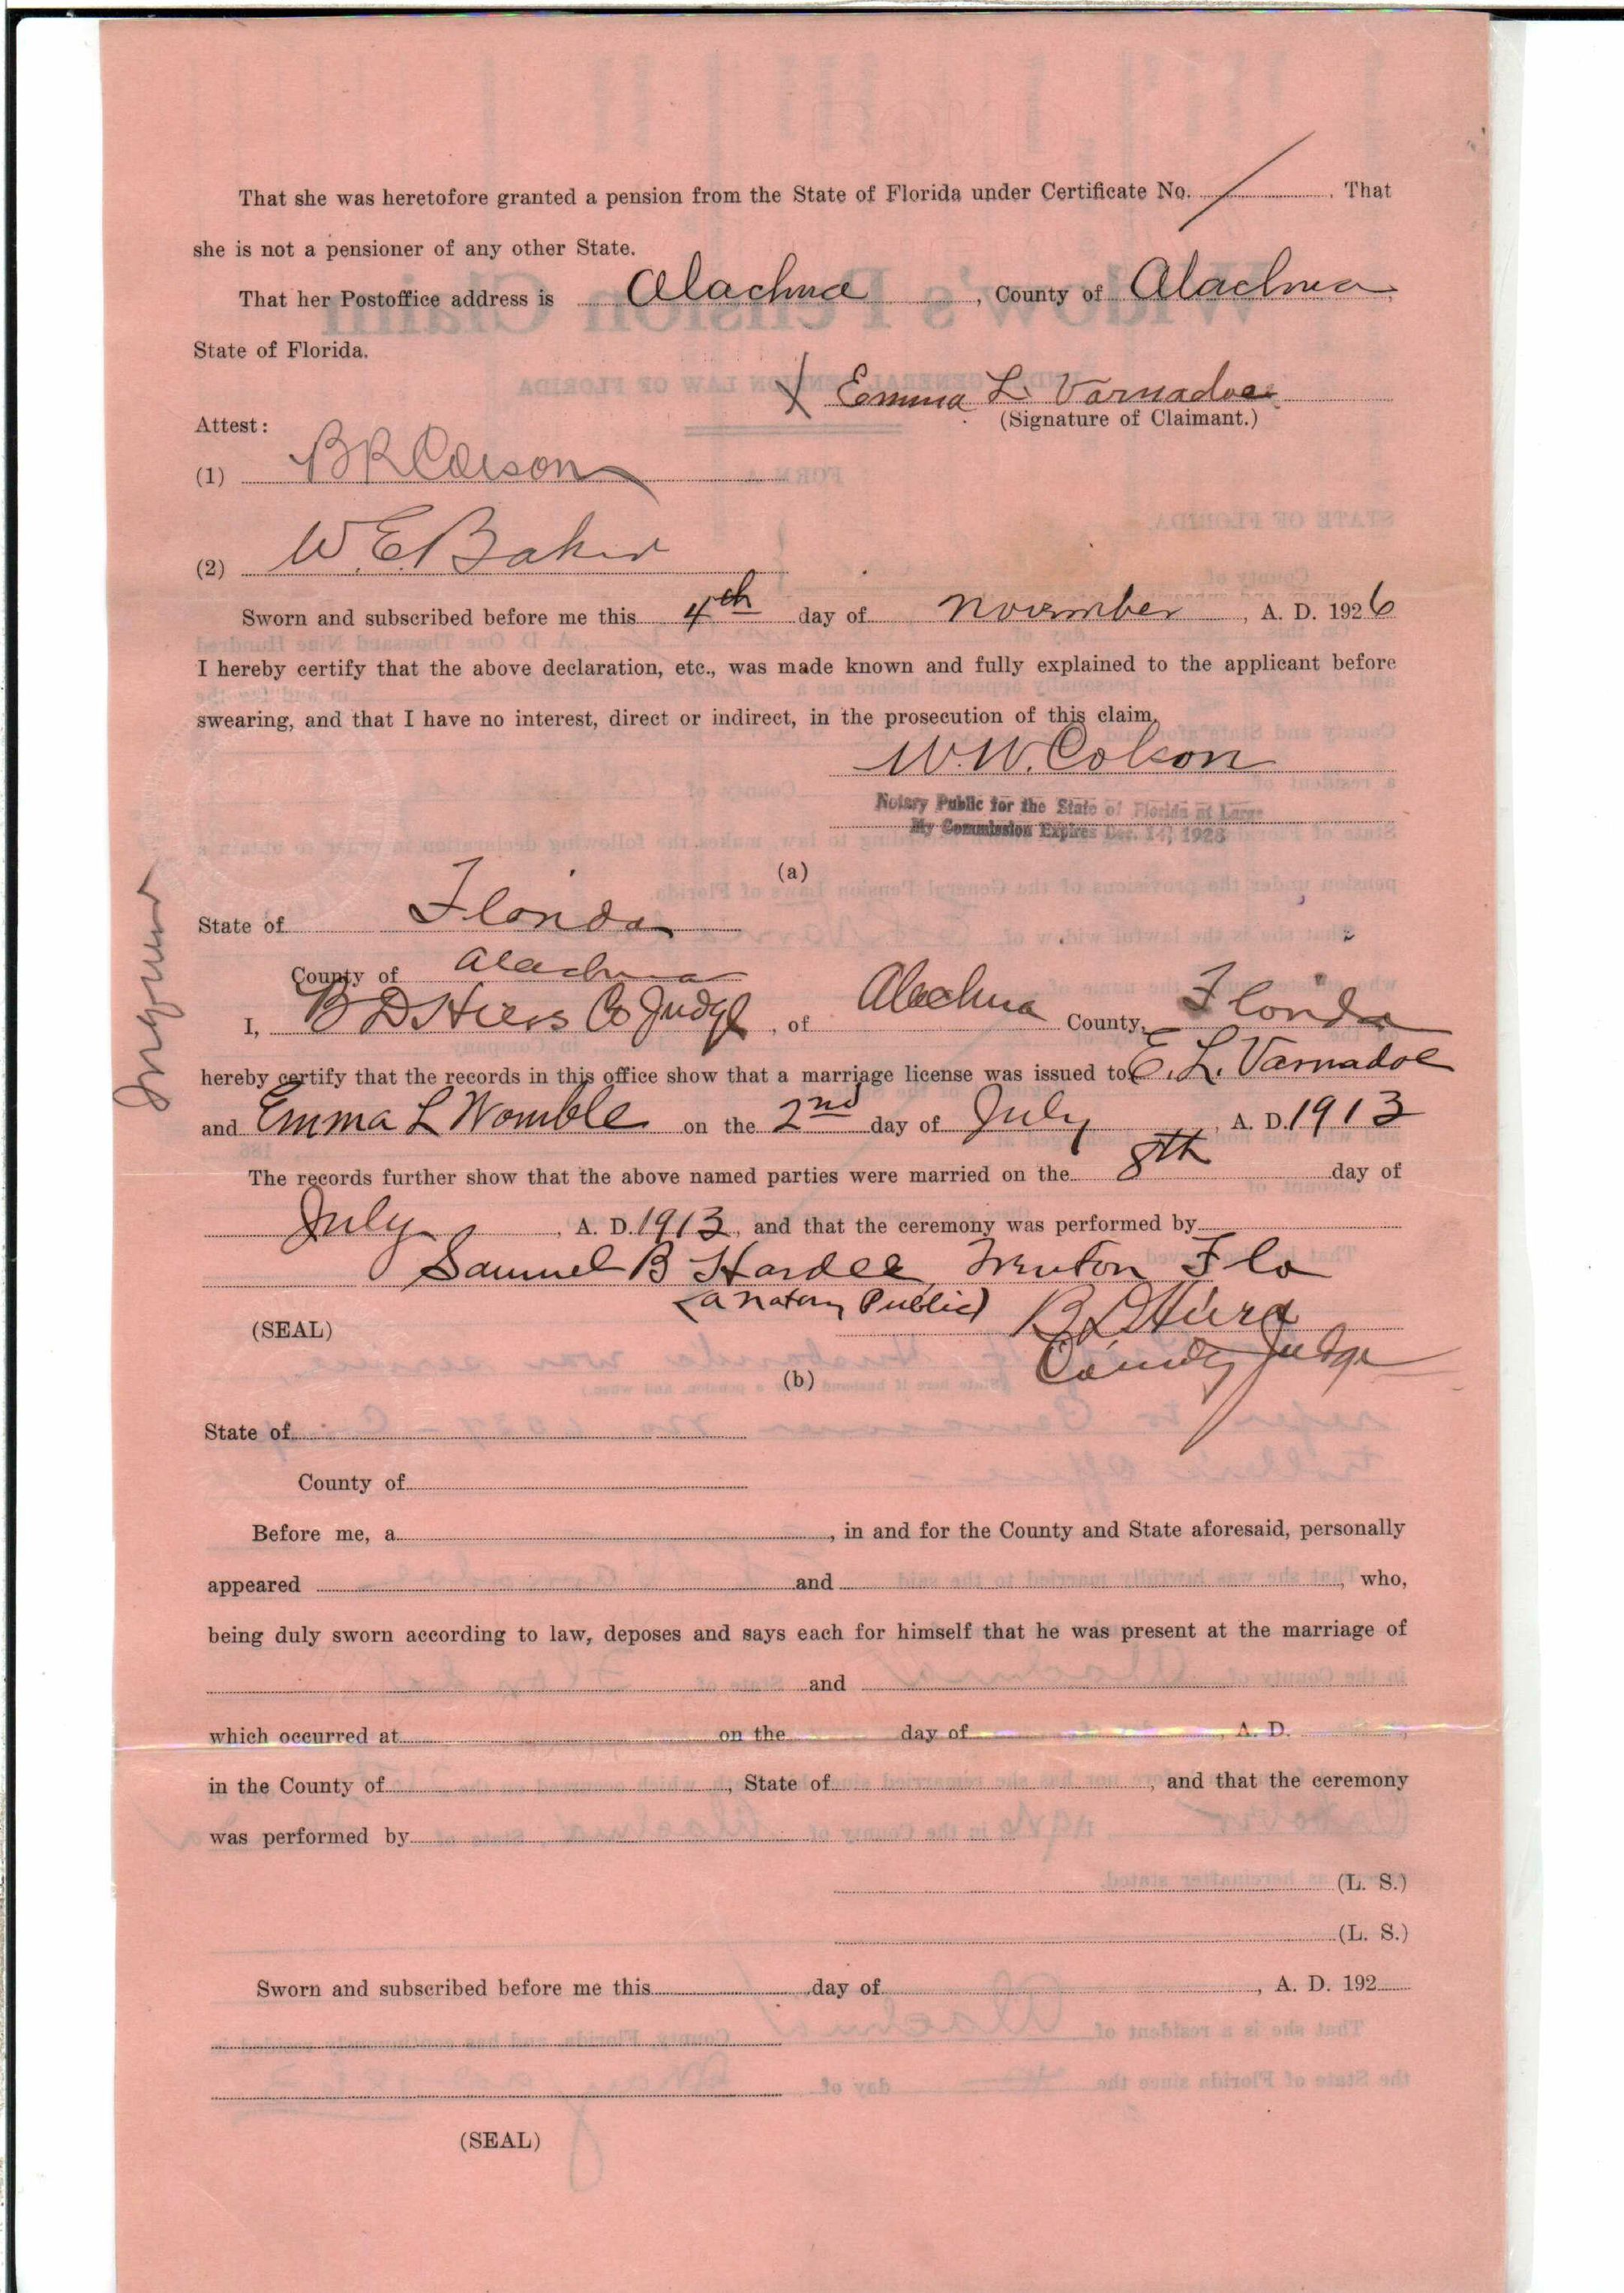 That she was heretofore granted a pension from the State of Florida under Certificate No. / . That
she is not a pensioner of any other State.
That her Postoffice address is Alachua, County of Alachua
State of Florida.
X Emma L. Varnadoe
(Signature of Claimant.)
Attest:
(1) B R Colson
(2) W. E. Baker
Sworn and subscribed before me this 4th day of November, A. D. 1926
I hereby certify that the above declaration, etc., was made known and fully explained to the applicant before
swearing, and that I have no interest, direct or indirect, in the prosecution of this claim.
W. W. Colson
Notary Public for the State of Florida at Large
My Commission Expires Dec. 14, 1928
(a)
State of Florida
County of Alachua
I, B D Hiers Co Judge, of Alachua County, Florida
hereby certify that the records in this office show that a marriage license was issued to E. L. Varnadoe
and Emma L Womble on the 2nd day of July, A. D. 1913
The records further show that the above named parties were married on the 8th day of
July, A. D. 1913, and that the ceremony was performed by
Samuel B Hardee, Trenton Fla
(a Notary Public)
(SEAL)
B D Hiers
County Judge
(b)
State of
County of
Before me, a , in and for the County and State aforesaid, personally
appeared and , who,
being duly sworn according to law, deposes and says each for himself that he was present at the marriage of
and
which occurred at on the day of , A. D. ,
in the County of , State of , and that the ceremony
was performed by
(L. S.)
(L. S.)
Sworn and subscribed before me this day of , A. D. 192
(SEAL)